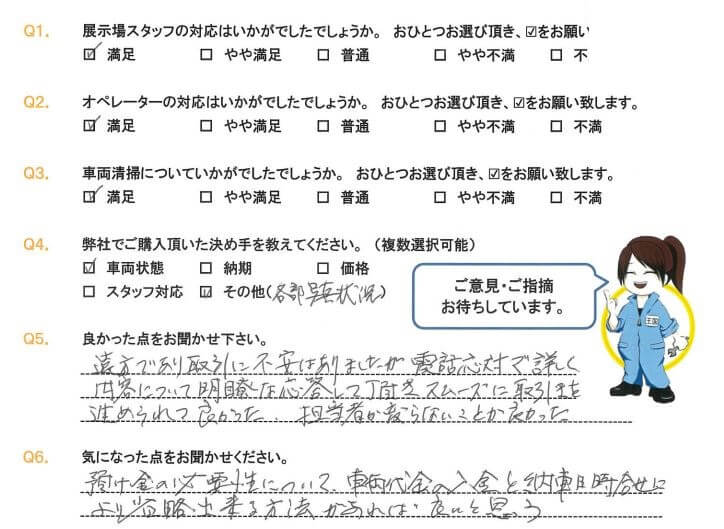 Q1. 展示場スタッフの対応はいかがでしたでしょうか。 おひとつお選び頂き、☑をお願い
☑ 満足 □ やや満足 □ 普通 □ やや不満 □ 不
Q2. オペレーターの対応はいかがでしたでしょうか。 おひとつお選び頂き、☑をお願い致します。
☑ 満足 □ やや満足 □ 普通 □ やや不満 □ 不満
Q3. 車両清掃についていかがでしたでしょうか。 おひとつお選び頂き、☑をお願い致します。
☑ 満足 □ やや満足 □ 普通 □ やや不満 □ 不満
Q4. 弊社でご購入頂いた決め手を教えてください。（複数選択可能）
☑ 車両状態 □ 納期 □ 価格
□ スタッフ対応 ☑ その他(各部写真状況)
ご意見・ご指摘
お待ちしています。
Q5. 良かった点をお聞かせ下さい。
遠方であり取引に不安はありましたが電話応対で詳しく
内容について明瞭な応答して頂きスムーズに取引きを
進められて良かった、担当者が変らないことが良かった
Q6. 気になった点をお聞かせください。
預け金の必要性について、車両代金の入金と納車日時合せに
より省略出来る方法があれば良いと思う